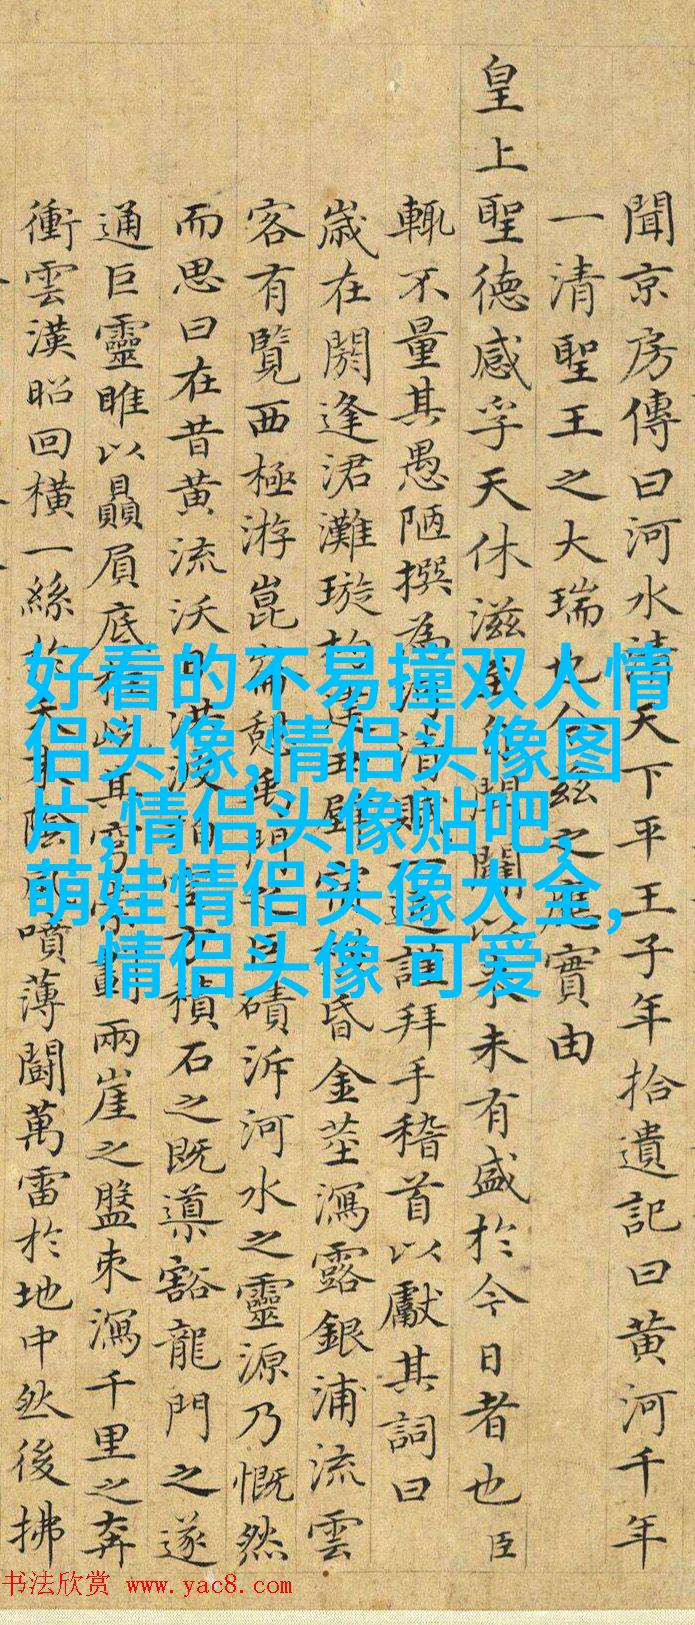 聞京房傳曰河水清天下平王子年拾遺記曰黃河千年
一清聖王之大瑞也今茲之慶實由
皇上聖德感孚天休滋至自開闢以來未有盛於今日者也臣
輒不量其愚陋撰為河清賦謹拜手稽首以獻其詞曰
歲在閼逢涒灘璇昏金莖瀉露銀浦流雲
客有覽西極游崑崙憩禹門磧泝河水之靈源乃慨然
而思曰在昔黃流沃日洪波拍積石之既導豁龍門之遂
通巨靈睢以贔屓底柱屼其兩崖之盤束瀉千里之奔
衝雲漢昭回橫一絲於天陰噴薄鬭萬雷於地中然後拂
好看的不易撞双人情
侣头像,情侣头像图
片,情侣头像贴吧,
萌娃情侣头像大全,
情侣头像 可爱
书法欣赏 www.yac8.com